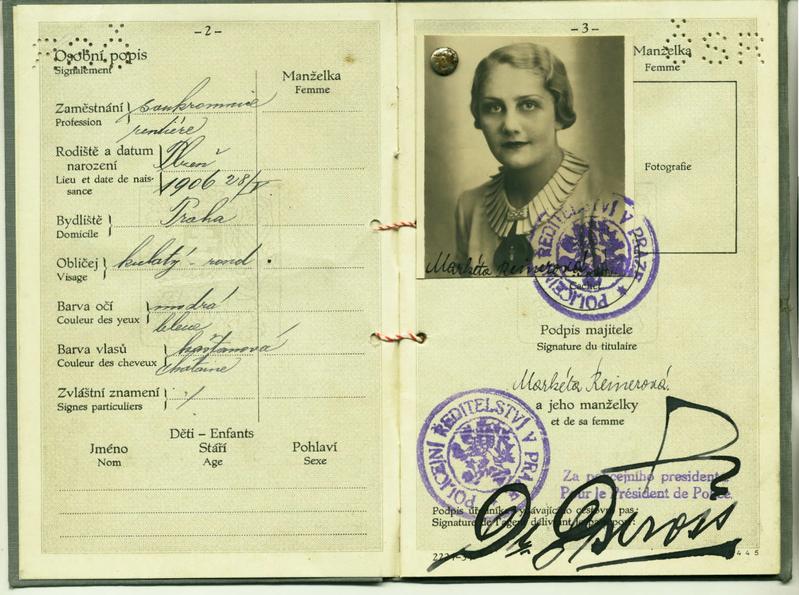 - 2 -
Osobní popis
Signalement
Manželka
Femme
Zaměstnání
Profession
soukromnice
rentière
Rodiště a datum
narození
Lieu et date de nais-
sance
Plzeň
1906 28/V
Bydliště
Domicile
Praha
Obličej
Visage
kulatý - rond
Barva očí
Couleur des yeux
modrá
bleue
Barva vlasů
Couleur des cheveux
kaštanová
chataine
Zvláštní znamení
Signes particuliers
Děti – Enfants
Jméno Stáří Pohlaví
Nom Age Sexe
- 3 -
Manželka
Femme
Fotografie
Markéta Reinerová
POLICEJNÍ ŘEDITELSTVÍ V PRAZE
Podpis majitele
Signature du titulaire
Markéta Reinerová
a jeho manželky
et de sa femme
POLICEJNÍ ŘEDITELSTVÍ V PRAZE
Za policejního presidenta
Pour le Président de Police.
Podpis úředníka vydávajícího cestovní pas:
Signature de l'agent délivrant le passeport: